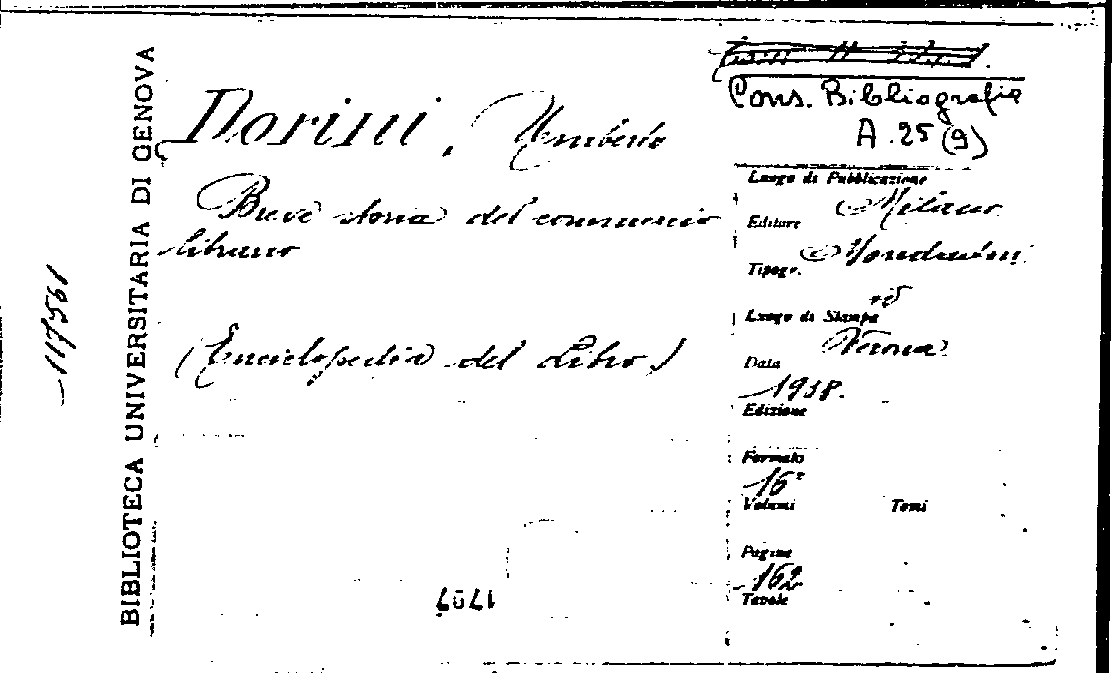 BIBLIOTECA UNIVERSITARIA DI GENOVA
117561
Dorini, Umberto
Breve storia del commercio
librario
(Enciclopedia del Libro)
Cons. Bibliografia
A.25(9)
Luogo di Pubblicazione
Milano
Editore
Mondadori
Tipogr.
Luogo di Stampa
Verona
Data
1938.
Edizione
Formato
16°
Volumi Tomi
Pagine
162
Tavole